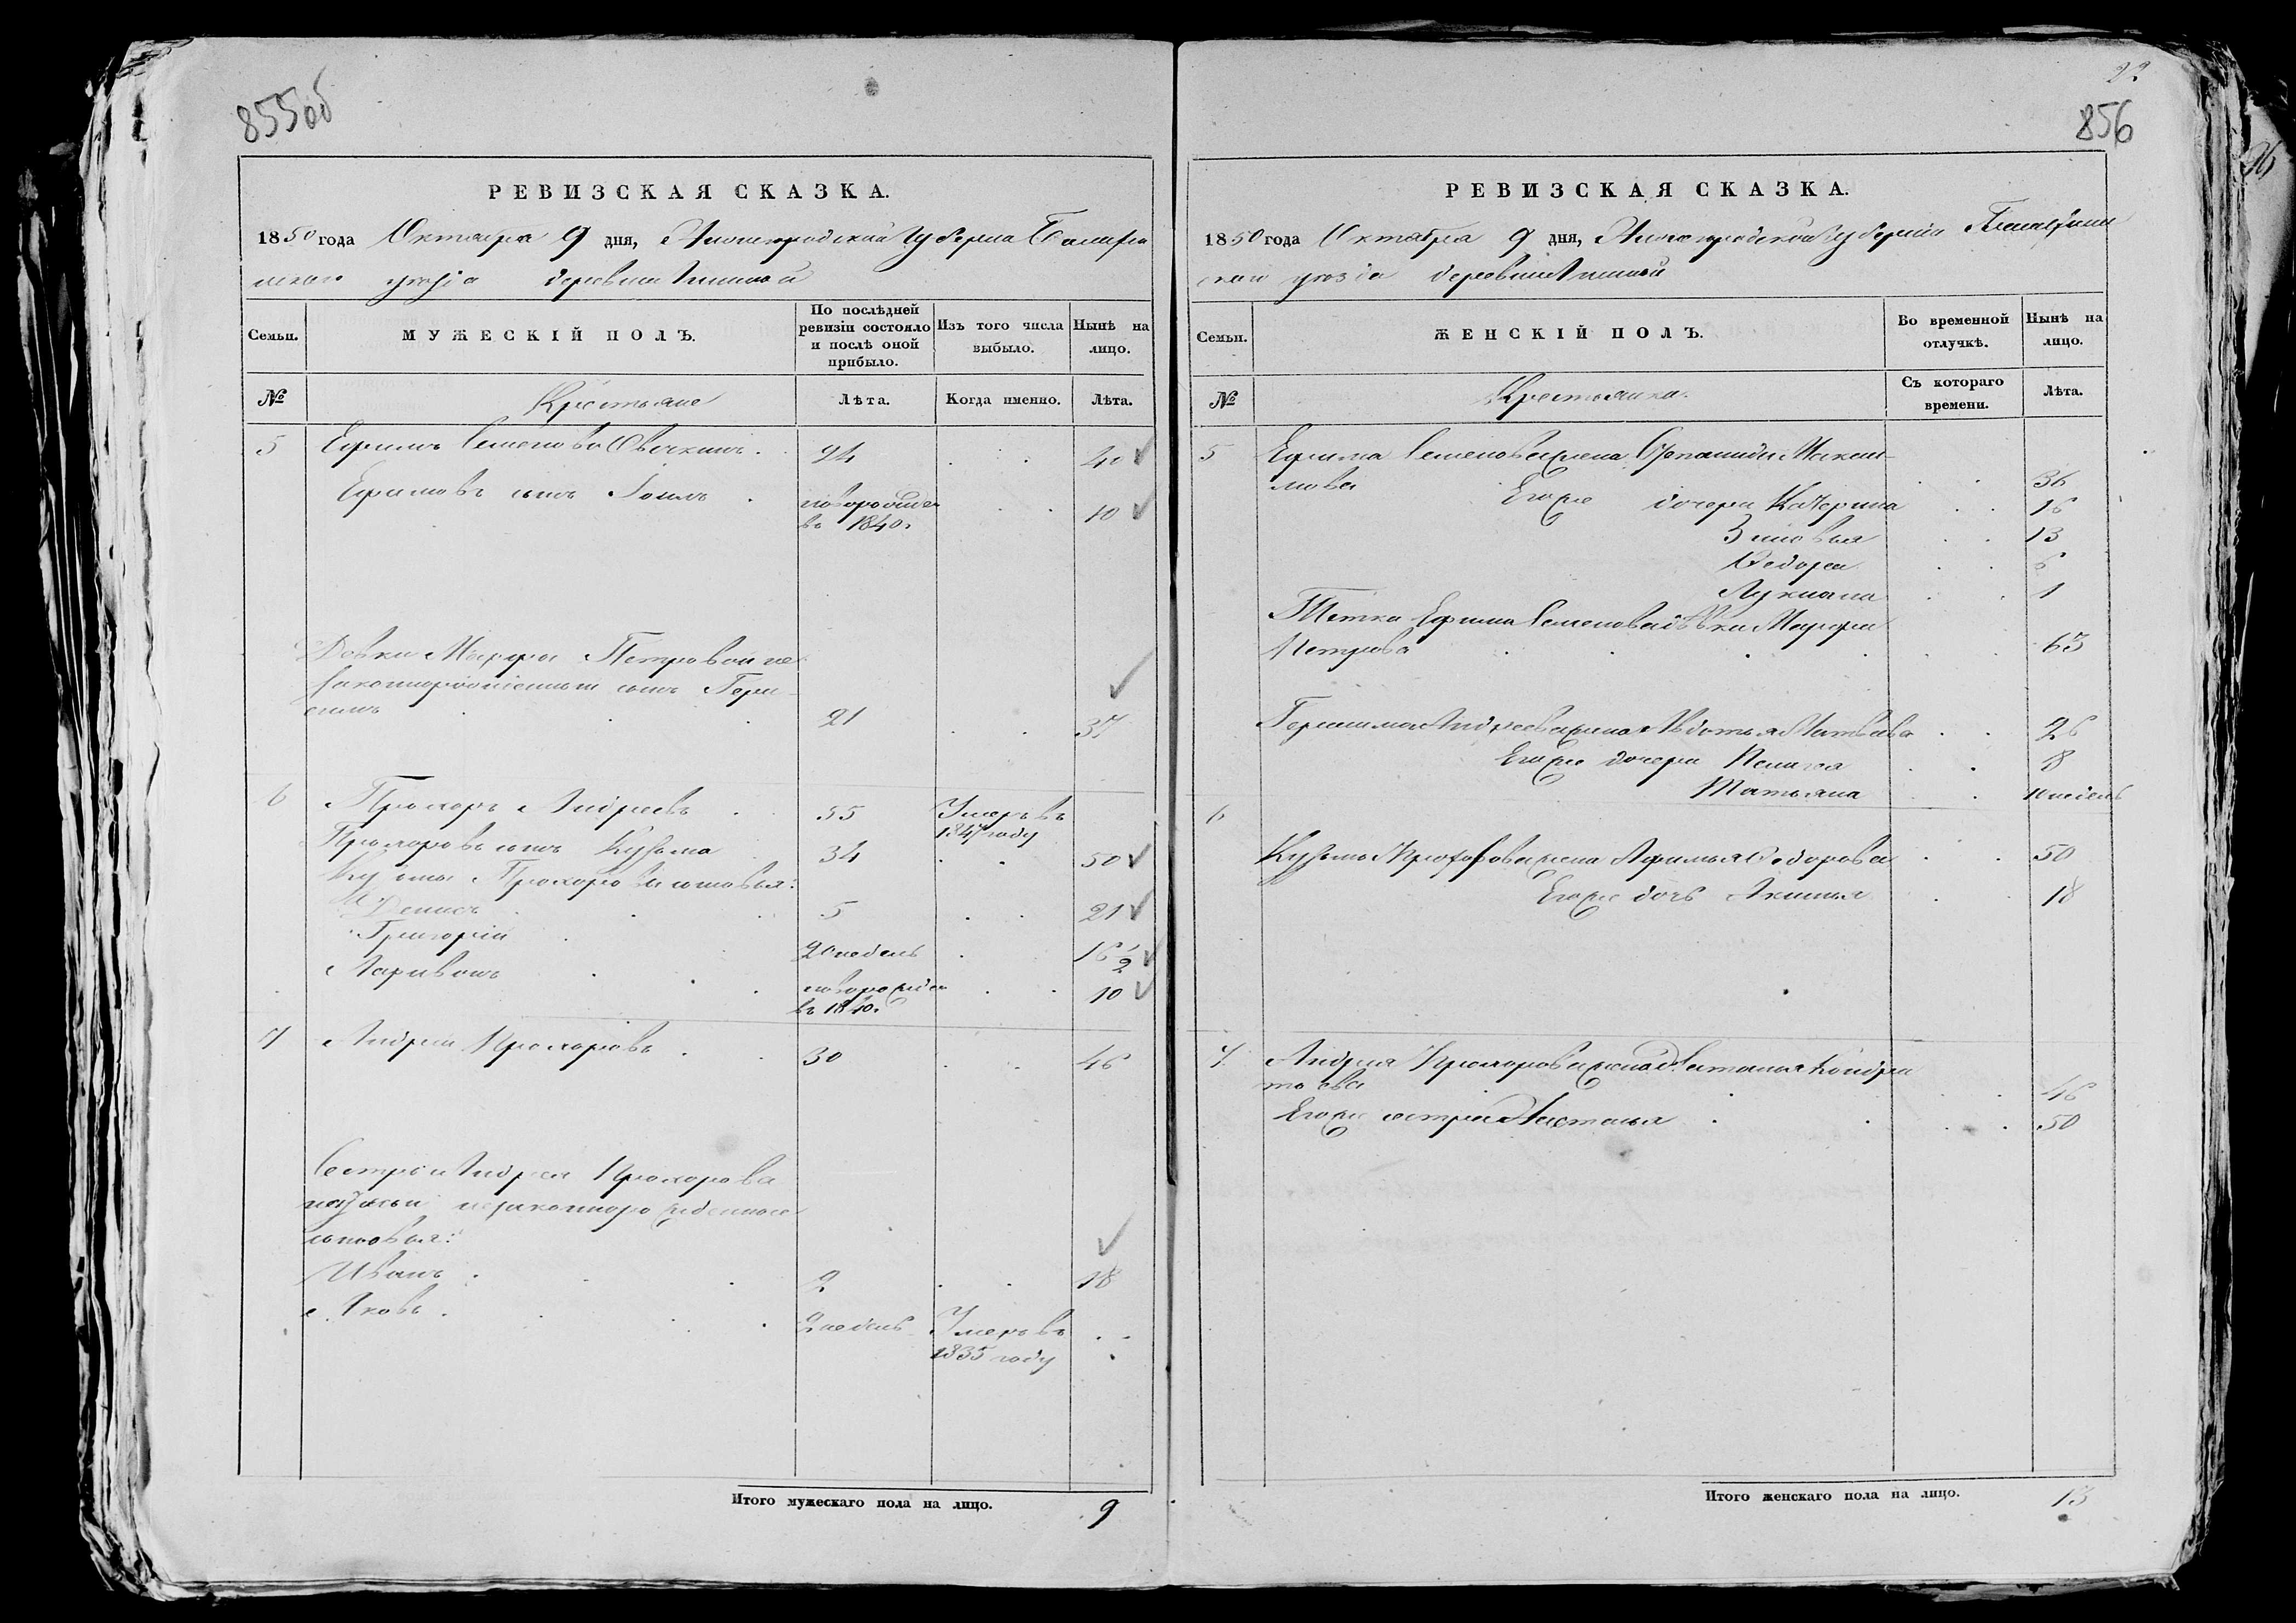 855об
РЕВИЗСКАЯ СКАЗКА.
1850 года Октября 9 дня, Нижегородской Губерніи Балахнин
скаго уѣзда деревни
Семьи.
МУЖЕСКІЙ ПОЛЪ.
По послѣдней ревизіи состояло и послѣ оной прибыло.
Изъ того числа выбыло.
Нынѣ на лицо.
№
Крестьяне
Лѣта.
Когда именно.
Лѣта.
5 Ефимъ Семеновъ Овечкинъ . 24 . . 40
Ефимовъ сынъ . новорожден
въ 1840. . . 10
Дѣвки Марфы Петровой не
законнорожденный сынъ Гера
симъ . . . 21 . . 37
6 Прохоръ Андреевъ . 55 Умеръ въ
1847 году
Прохоровъ сынъ Кузьма 34 . . 50
Кузьмы Прохорова сыновья:
Денисъ . . . 5 . . 21
Григорій . 20 недель . 16 1/2
Ларивонъ . . . новорожден
въ 1840. . . 10
7 Андрей Прохоровъ . . 30 . . 46
Сестры Андрея Прохорова
незаконнорожденные
сыновья:
Иванъ . . . 2 . . 18
Яковъ . . . 2 недель Умеръ въ
1835 году
Итого мужескаго пола на лицо. 9
22
856
РЕВИЗСКАЯ СКАЗКА.
1850 года Октября 9 дня, Нижегородской Губерніи Балахнин
скаго уѣзда деревни
Семьи.
ЖЕНСКІЙ ПОЛЪ.
Во временной отлучкѣ.
Нынѣ на лицо.
№
Крестьянки.
Съ котораго времени.
Лѣта.
5 Ефима Семенова жена Максим
мова . . 36
Егоже дочери Катерина . . 16
Зиновья . . 13
Федора . . 6
Лукиана . . 1
Тетка Ефима Семенова дѣвка Марфа
Петрова . . . . . . 63
Герасима Андреева жена Авдотья Матвѣева . . 26
Егоже дочери Пелагея . . 8
Татьяна . . 10 недель
6
Кузьмы Прохорова жена Афимья Федорова . . 50
Егоже дочь Аксинья . . 18
7 Андрея Прохорова жена Кондра
тьева . . . 46
Егоже сестра Настасья . . . . 50
Итого женскаго пола на лицо. 13